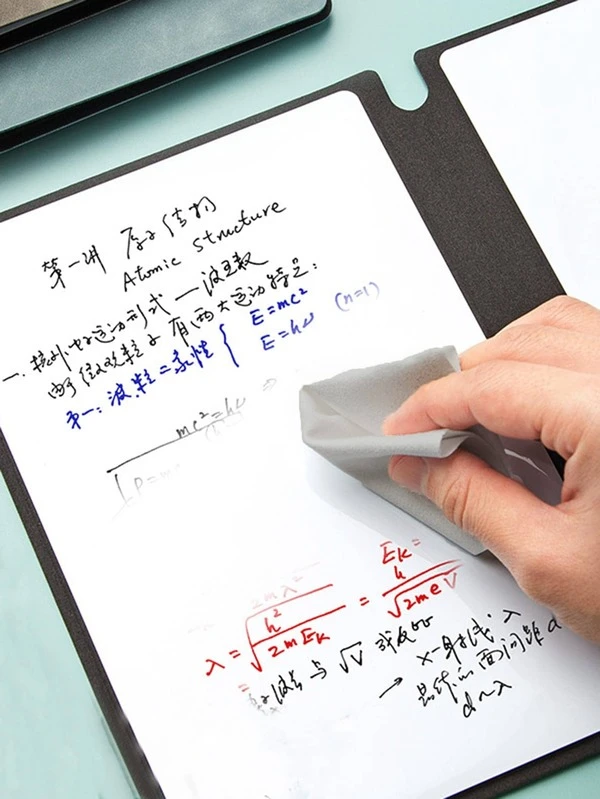 第一讲 原子结构
Atomic Structure
一. 核外电子运动形式 — 波函数
微观粒子有两大运动特点:
第一: 波粒二象性 { E=mc² (n=1)
E=hν
mc²=hν
P=mc
2mλ²
E_k=
λ = √(h²/2mE_k) = h/√(2meV)
电子波长与√V成反比
→ X-射线 λ
晶体的面间距 d
d~λ